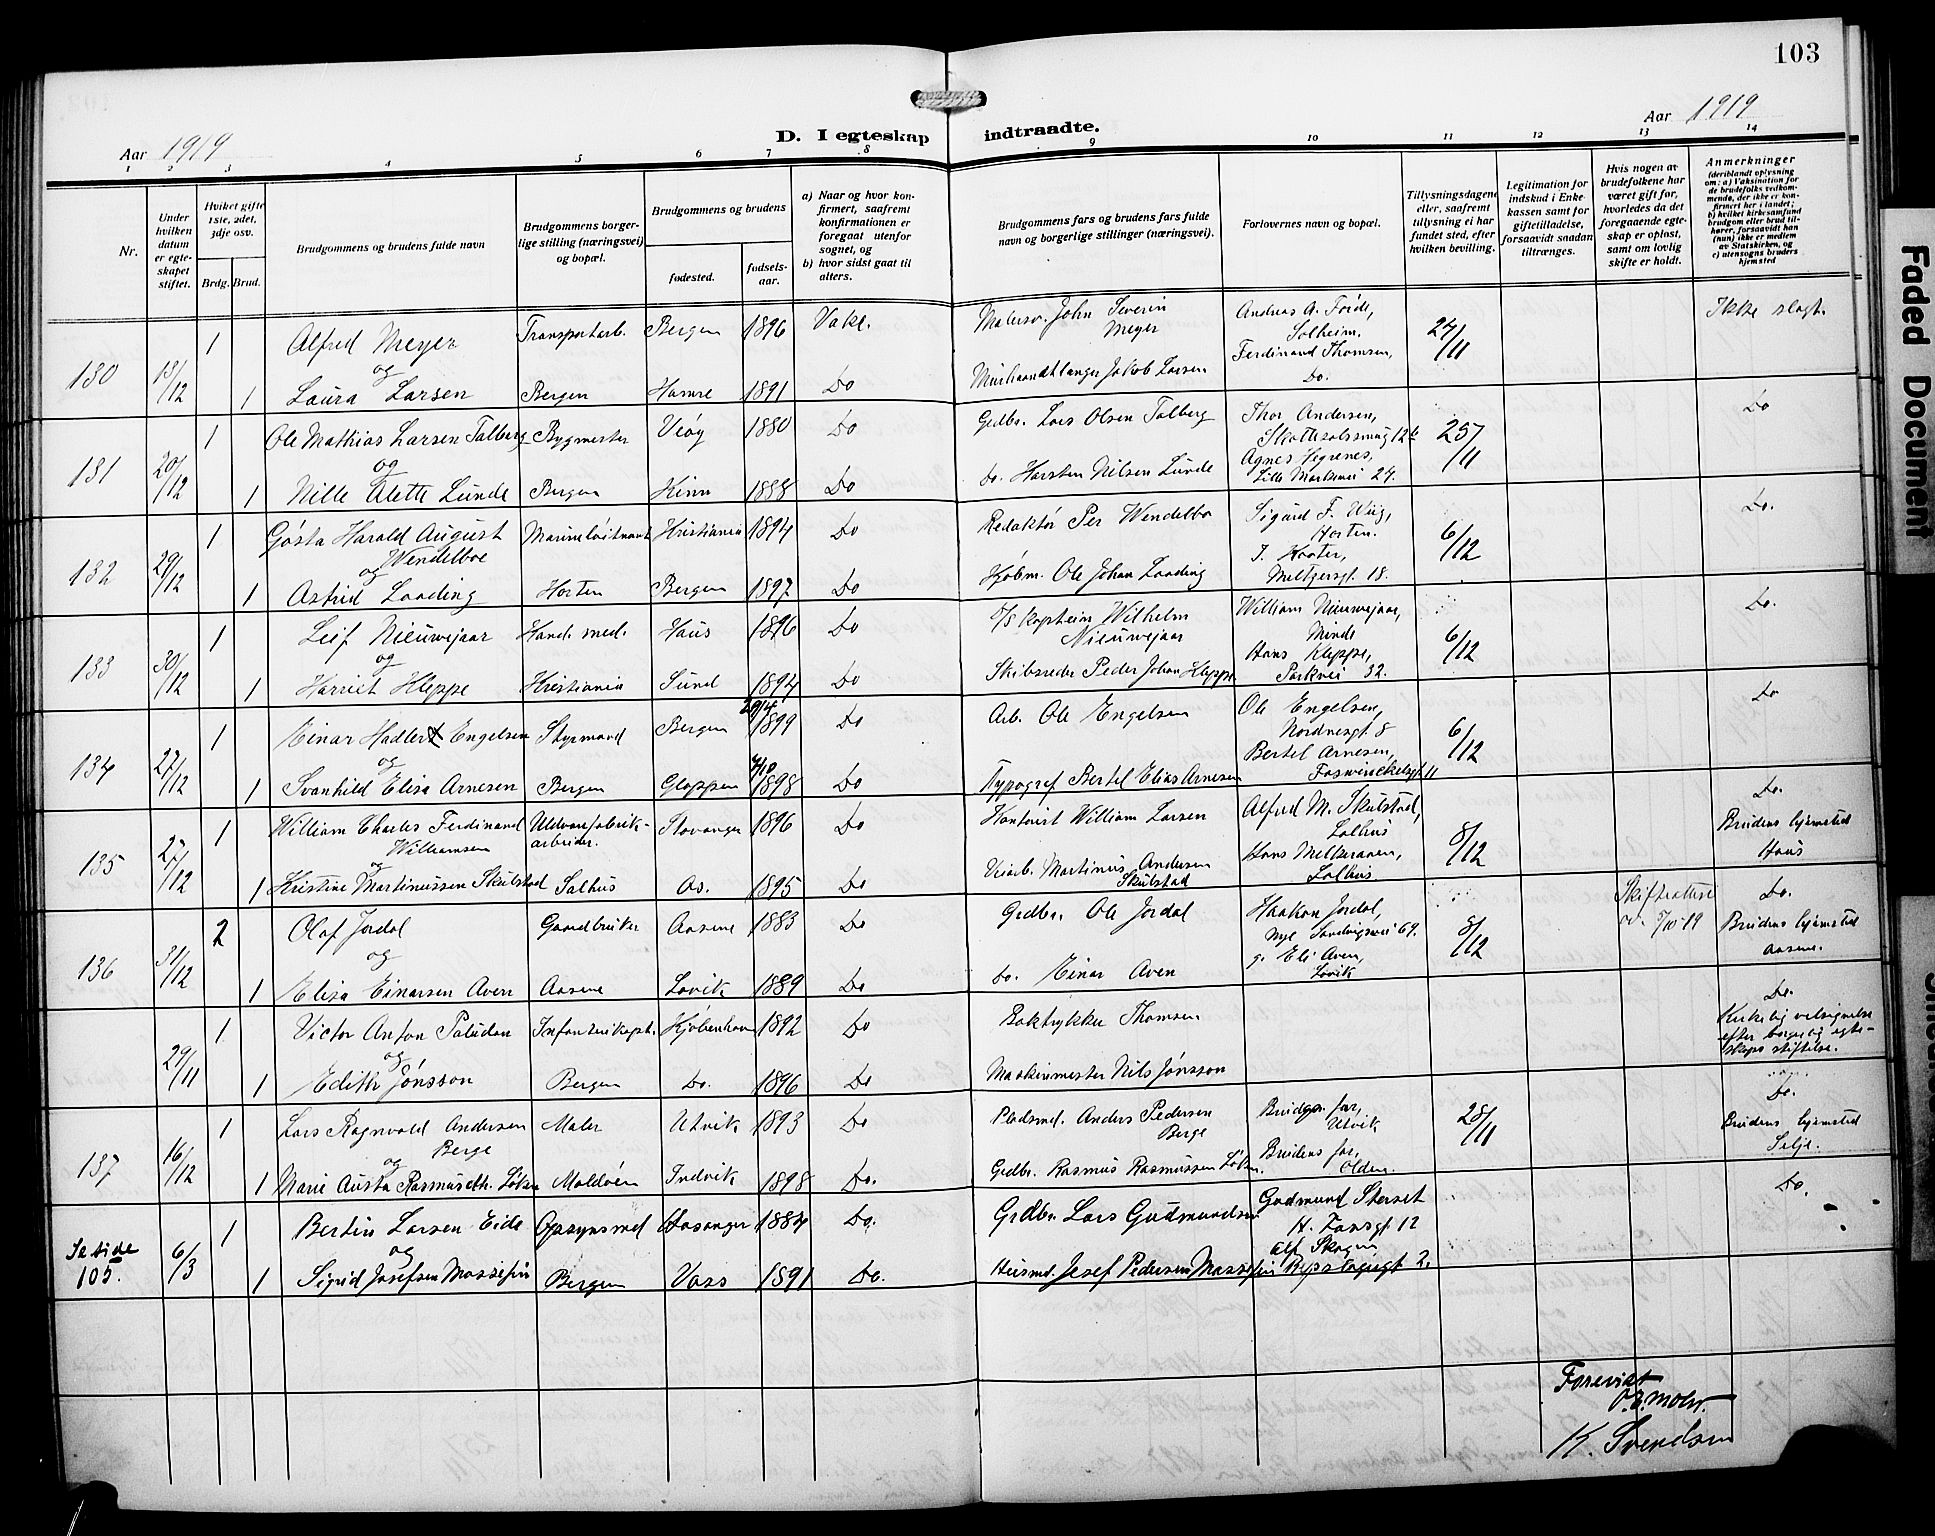 103
Aar 1919
D. I egteskap indtraadte.
Aar 1919
1 2 3 4 5 6 7 8 9 10 11 12 13 14
Nr.
Under hvilken datum er egteskapet stiftet.
Hviket gifte 1ste, 2det, 3dje osv.
Brdg. Brud.
Brudgommens og brudens fulde navn
Brudgommens borgerlige stilling (næringsvei) og bopæl.
Brudgommens og brudens
fødested.
fødselsaar.
a) Naar og hvor konfirmert, saafremt konfirmationen er foregaat utenfor sognet, og
b) hvor sidst gaat til alters.
Brudgommens fars og brudens fars fulde navn og borgerlige stillinger (næringsvei).
Forlovernes navn og bopæl.
Tillysningsdagene eller, saafremt tillysning ei har fundet sted, efter hvilken bevilling.
Legitimation for indskud i Enkekassen samt for giftetilladelse, forsaavidt saadan tiltrænges.
Hvis nogen av brudefolkene har været gift før, hvorledes da det foregaaende egteskap er opløst, samt om lovlig skifte er holdt.
Anmerkninger
(deriblandt oplysning om: a) Vaksination for de brudefolks vedkommende, der ikke er konfirmert her i landet; b) hvilket kirkesamfund brudgom eller brud tilhører, forsaavidt han (hun) ikke er medlem av Statskirken, og c) utensogns bruders hjemsted
130 13/12 1 Alfred Meyer Transportarb. Bergen 1896 Vakc. Malersv. John Severin Meyer Andreas A. Foide, Solheim. 24/11 Ikke slegt.
og
1 Laura Larsen Bergen Hamre 1891 Do Murhaandtlanger Jakob Larsen Ferdinand Thomsen, Do.
131 20/12 1 Ole Mathias Larsen Talberg Bygmester Veøy 1880 Do Grdbr. Lars Olsen Talberg Thor Andersen, 25/11 Do
og
1 Nille Alette Lunde Bergen Kinn 1888 Do Do. Karsten Nilsen Lunde Agnes Hegrenes, Lille Markevei 24.
132 29/12 1 Gösta Harald August Wendelboe Marineløitnant Kristiania 1894 Do Redaktør Per Wendelbo Sigurd F. Wiig, Horten. 6/12 Do.
og
1 Astrid Laading Horten Bergen 1897 Do Kjøbm. Ole Johan Laading Meltzersgt. 18.
133 30/12 1 Leif Nieuwejaar Hand. med. Haus 1896 Do Wilhelm Nieuwejaar William Nieuwejaar, Minde 6/12 Do.
og
1 Harriet Kleppe Kristiania Sund 1894 Do Skibsreder Peder Johan Kleppe Hans Kleppe, Parkvei 32.
134 27/12 1 Einar Hadler Engelsen Styrmand Bergen 29/4 1899 Do Arb. Ole Engelsen Ole Engelsen, Nordnesgt 8 6/12 Do
og
1 Svanhild Elisa Arnesen Bergen Gloppen 1898 Do Typograf Bertel Elias Arnesen Bertel Arnesen, Foswinckelsgt 11
135 27/12 1 William Charles Ferdinand Williamsen Uldvarefabrikarbeider. Stavanger 1896 Do William Larsen Alfred M. Skulstad, Salhus 8/12 Do. Brudens hjemsted Haus
og
1 Kristine Martinussen Skulstad Salhus Do. 1895 Do Martinus Andersen Skulstad Hans Melkeraaen, Salhus
136 31/12 2 Olaf Jordal Gaardbruker Aasene 1883 Do Grdbr. Ole Jordal Haakon Jordal, Nye Sandviksvei 69. 8/12 Do. Brudens hjemsted Aasene.
og
1 Elisa Einarsen Aven Aasene Lavik 1889 Do Do. Einar Aven Eli Aven, Lavik
29/11 1 Victor Anton Paludan Infanterikapt. Kjøbenhavn 1892 Do Boktrykker Thomsen Do. Kirkelig velsignelse efter borgelig egteskaps stiftelse.
og
1 Edith Jönsson Bergen Do. 1896 Do Maskinmester Nils Jønsson
137 16/12 1 Lars Ragnvald Andersen Berge Maler Utvik 1893 Do Pladsmd. Anders Pedersen Berge Brudgs. far, Utvik 28/11 Do. Brudens hjemsted Selje.
og
1 Marie Rasmusdtr. Løken Maldøen Indvik 1898 Do. Grdbr. Rasmus Rasmussen Løken. Brudens far, Olden.
Se side 105. 6/3 1 Bertin Larsen Eide Opsynsmd Hosanger 1884 Do. Grdbr. Lars Gudmundsen Gudmund Sterset H. Zansgt. 12 Do.
og
1 Sigrid Josefsen Mossefin Bergen Voss 1891 Do. Husmd. Josef Pedersen Mossefin Alf Skogen
K. Svendsen
Faded Document